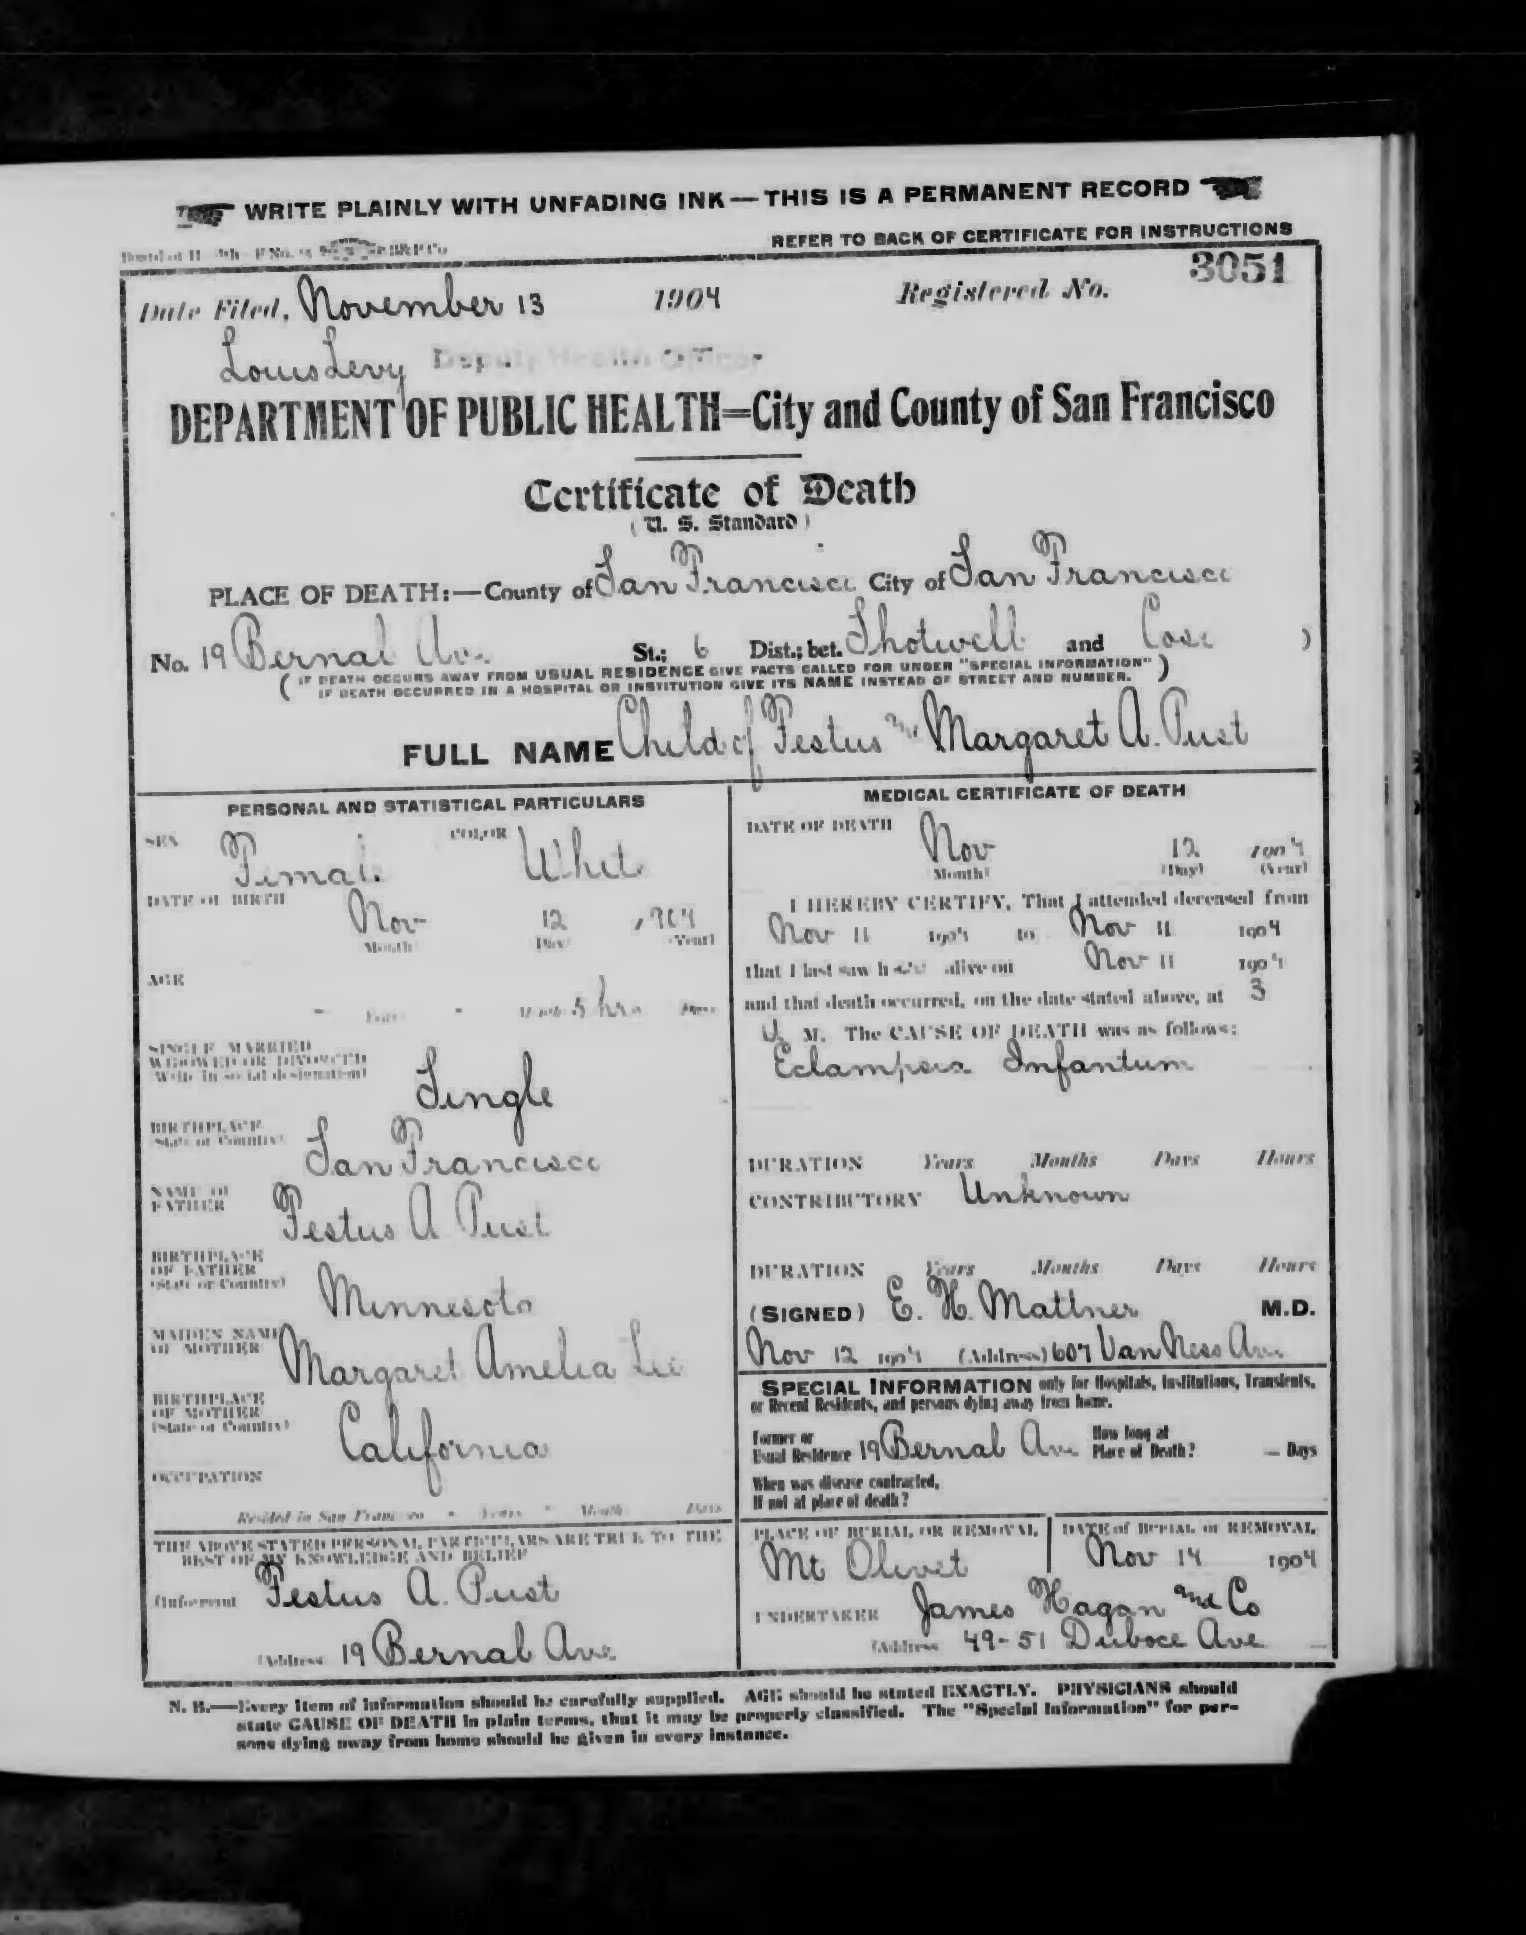 WRITE PLAINLY WITH UNFADING INK — THIS IS A PERMANENT RECORD
REFER TO BACK OF CERTIFICATE FOR INSTRUCTIONS
3051
Date Filed, November 13 1904 Registered No.
Louis Levy Deputy Health Officer
DEPARTMENT OF PUBLIC HEALTH=City and County of San Francisco
Certificate of Death
(U. S. Standard)
PLACE OF DEATH:—County of San Francisco City of San Francisco
No. 19 Bernal Av. St.; 6 Dist.; bet. Shotwell and )
( IF DEATH OCCURS AWAY FROM USUAL RESIDENCE GIVE FACTS CALLED FOR UNDER "SPECIAL INFORMATION" )
IF DEATH OCCURRED IN A HOSPITAL OR INSTITUTION GIVE ITS NAME INSTEAD OF STREET AND NUMBER.
FULL NAME Child of Festus and Margaret A. Pust
PERSONAL AND STATISTICAL PARTICULARS
SEX Female COLOR White
DATE OF BIRTH Nov 12 1904
Month Day (Year)
AGE
Years Months 5 hrs Days
SINGLE MARRIED
WIDOWED OR DIVORCED
(Write in social designation) Single
BIRTHPLACE
(State or Country) San Francisco
NAME OF
FATHER Festus A Pust
BIRTHPLACE
OF FATHER
(State or Country) Minnesota
MAIDEN NAME
OF MOTHER Margaret Amelia Lee
BIRTHPLACE
OF MOTHER
(State or Country) California
OCCUPATION
Resided in San Francisco Years Months Days
THE ABOVE STATED PERSONAL PARTICULARS ARE TRUE TO THE
BEST OF MY KNOWLEDGE AND BELIEF
(Informant Festus A. Pust
(Address 19 Bernal Ave
MEDICAL CERTIFICATE OF DEATH
DATE OF DEATH Nov 12 1904
(Month) (Day) (Year)
I HEREBY CERTIFY, That I attended deceased from
Nov 11 1904 to Nov 11 1904
that I last saw her alive on Nov 11 1904
and that death occurred, on the date stated above, at 3
M. The CAUSE OF DEATH was as follows:
Eclampsia Infantum
DURATION Years Months Days Hours
CONTRIBUTORY Unknown
DURATION Years Months Days Hours
(SIGNED) E. H. Mattner M.D.
Nov 12 1904 (Address) 607 Van Ness Ave
SPECIAL INFORMATION only for Hospitals, Institutions, Transients,
or Recent Residents, and persons dying away from home.
Former or
Usual Residence 19 Bernal Ave How long at
Place of Death? — Days
When was disease contracted,
If not at place of death?
PLACE OF BURIAL OR REMOVAL
Mt Olivet
DATE of BURIAL or REMOVAL
Nov 14 1904
UNDERTAKER James Hagan and Co
(Address 49-51 Duboce Ave
N. B.—Every item of information should be carefully supplied. AGE should be stated EXACTLY. PHYSICIANS should
state CAUSE OF DEATH in plain terms, that it may be properly classified. The "Special Information" for per-
sons dying away from home should be given in every instance.